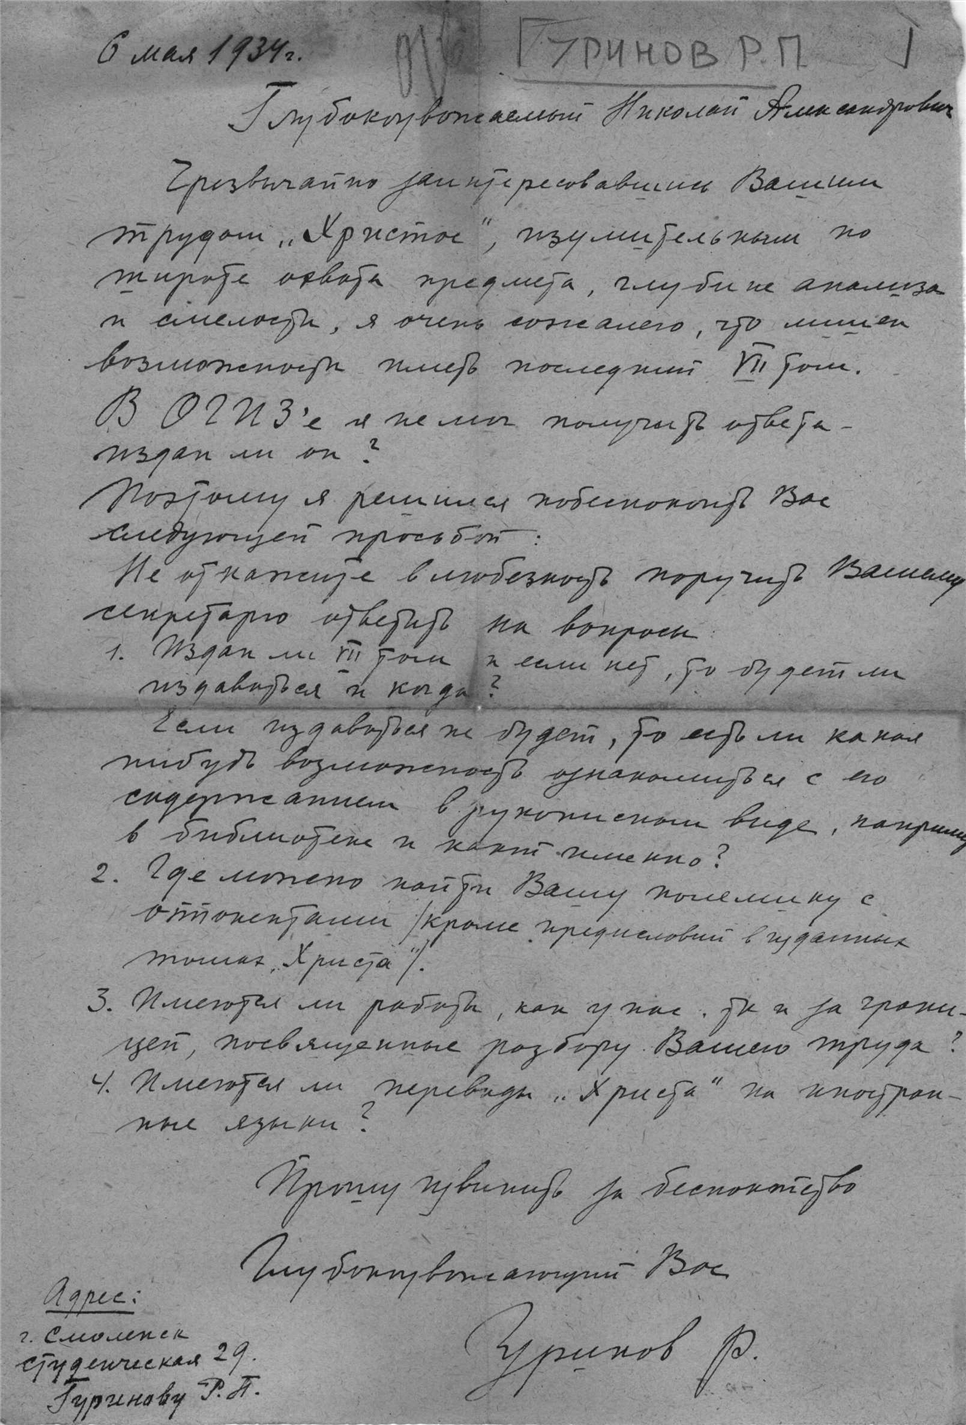 6 мая 1934 г.
ГУРИНОВ Р.П.
Глубокоуважаемый Николай Александрович
Чрезвычайно заинтересовавшись Вашим
трудом „Христос“, изумительным по
широте охвата предмета, глубине анализа
и смелости, я очень сожалею, что лишен
возможности иметь последний VII том.
В ОГИЗ'е я не мог получить ответа –
издан ли он?
Поэтому я решился побеспокоить Вас
следующей просьбой:
Не откажите в любезность поручить Вашему
секретарю ответить на вопросы
1. Издан ли VII том и если нет, то будет ли
издаваться и когда?
Если издаваться не будет, то есть ли какая
нибудь возможность ознакомиться с его
содержанием в рукописном виде, например
в библиотеке и какой именно?
2. Где можно найти Вашу полемику с
оппонентами (кроме предисловий в изданных
томах „Христа“).
3. Имеются ли работы, как у нас, так и за грани-
цей, посвященные разбору Вашего труда?
4. Имеются ли переводы „Христа“ на иностран-
ные языки?
Прошу извинить за беспокойство
Глубокоуважающий Вас
Гуринов Р.
Адрес:
г. Смоленск
Студенческая 29.
Гуринову Р.П.